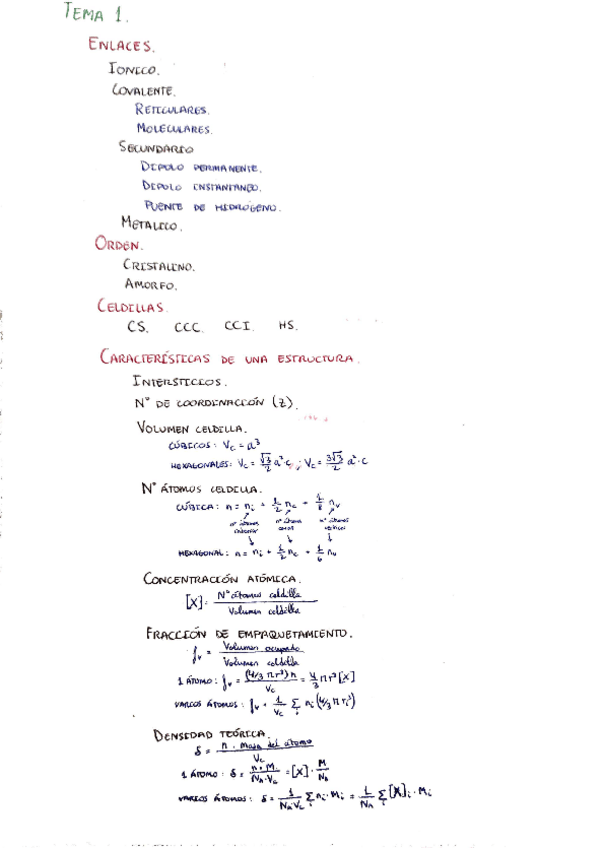 TEMA 1.
ENLACES.
IONICO.
COVALENTE.
RETICULARES.
MOLECULARES.
SECUNDARIO
DIPOLO PERMANENTE.
DIPOLO INSTANTANEO.
PUENTE DE HIDRÓGENO.
METALICO.
ORDEN.
CRISTALINO.
AMORFO.
CELDILLAS
CS. CCC. CCI. HS.
CARACTERÍSTICAS DE UNA ESTRUCTURA.
INTERSTICIOS.
Nº DE COORDINACCIÓN (Z).
VOLUMEN CELDILLA.
CÚBICOS: Vc = a³
HEXAGONALES: Vc = √3/2 a²·c ; Vc = 3√3/2 a²·c
Nº ÁTOMOS CELDILLA.
CÚBICA: n = ni + 1/2 nc + 1/8 nv
nº átomos interior nº átomos caras nº átomos vértices
HEXAGONAL: n = ni + 1/2 nc + 1/6 nv
CONCENTRACCIÓN ATÓMICA.
[X] = Nº átomos celdilla / Volumen celdilla
FRACCIÓN DE EMPAQUETAMIENTO.
fv = Volumen ocupado / Volumen celdilla
1 ÁTOMO: fv = (4/3 π r³) n / Vc = 4/3 π r³ [X]
VARIOS ÁTOMOS: fv = 1/Vc Σi ni (4/3 π ri³)
DENSIDAD TEÓRICA
δ = n · Masa del átomo / Vc
1 ÁTOMO: δ = n·M / NA·Vc = [X] · M/NA
VARIOS ÁTOMOS: δ = 1/NAVc Σi ni · Mi = 1/NA Σi [X]i · Mi